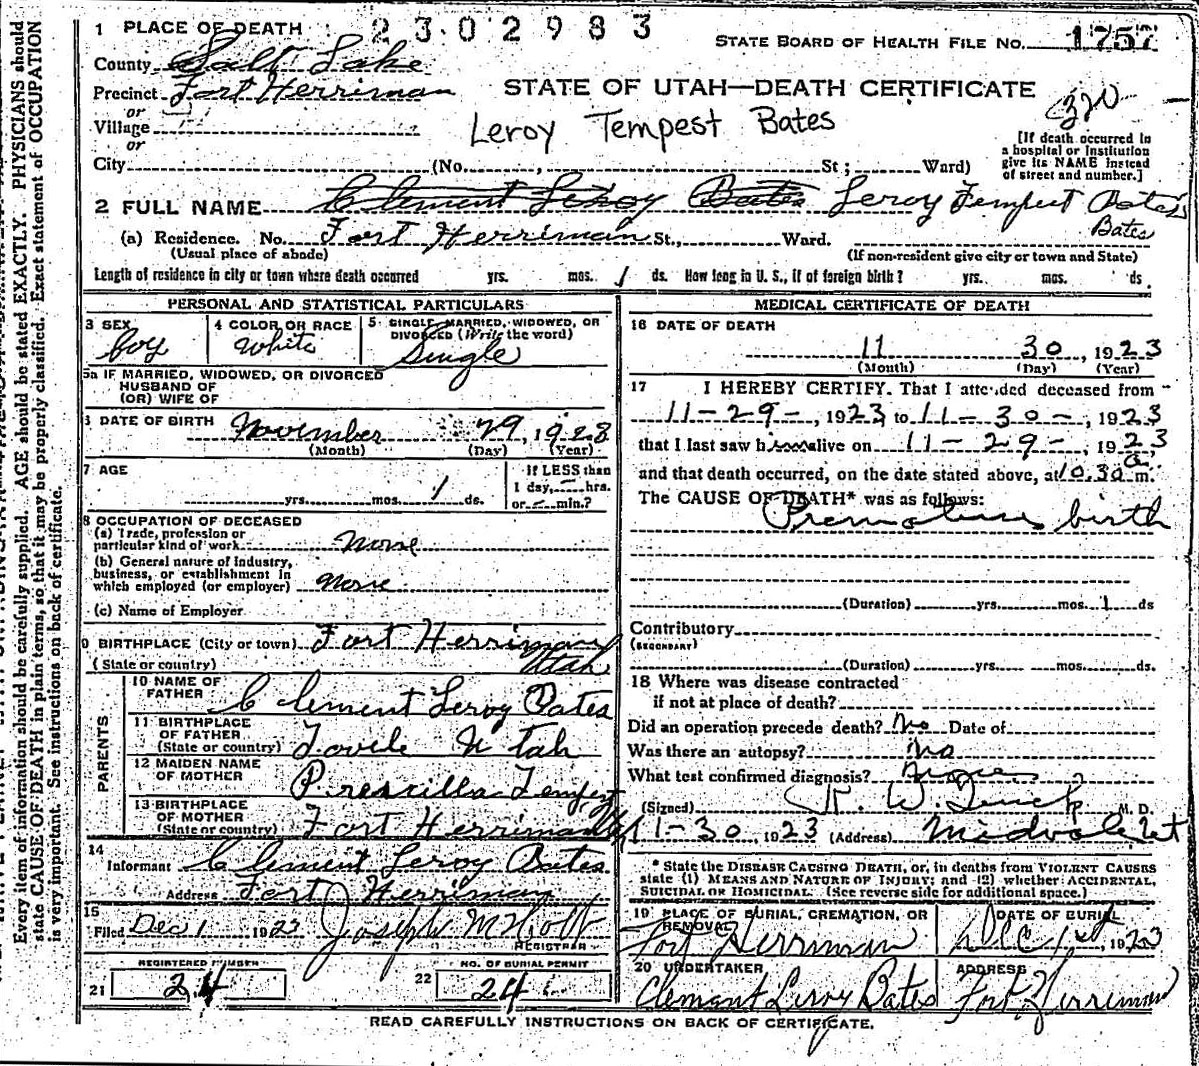 1 PLACE OF DEATH 2302983
STATE BOARD OF HEALTH FILE NO. 1757
County Salt Lake
Precinct Fort Herriman
or
Village
or
STATE OF UTAH—DEATH CERTIFICATE
320
Leroy Tempest Bates
[If death occurred in
a hospital or institution
give its NAME instead
of street and number.]
City (No. , St ; Ward)
2 FULL NAME Clement Leroy Bates Leroy Tempest Bates
Bates
(a) Residence. No. Fort Herriman St., Ward.
(Usual place of abode) (If non-resident give city or town and State)
Length of residence in city or town where death occurred yrs. mos. 1 ds. How long in U. S., if of foreign birth? yrs. mos. ds.
PERSONAL AND STATISTICAL PARTICULARS
3 SEX 4 COLOR OR RACE 5 SINGLE, MARRIED, WIDOWED, OR
DIVORCED (Write the word)
boy White Single
5a IF MARRIED, WIDOWED, OR DIVORCED
HUSBAND OF
(OR) WIFE OF
6 DATE OF BIRTH November 29, 1923
(Month) (Day) (Year)
7 AGE If LESS than
1 day, hrs.
yrs. mos. 1 ds. or min.?
8 OCCUPATION OF DECEASED
(a) Trade, profession or
particular kind of work None
(b) General nature of industry,
business, or establishment in
which employed (or employer) None
(c) Name of Employer
9 BIRTHPLACE (City or town) Fort Herriman
(State or country) Utah
PARENTS
10 NAME OF
FATHER Clement Leroy Bates
11 BIRTHPLACE
OF FATHER
(State or country) Tovile Utah
12 MAIDEN NAME
OF MOTHER Prescilla Tempest
13 BIRTHPLACE
OF MOTHER
(State or country) Fort Herriman
14
Informant Clement Leroy Bates
Address Fort Herriman
15
Filed Dec 1 1923 Joseph M
REGISTRAR
REGISTERED NUMBER NO. OF BURIAL PERMIT
21 24 22 24
MEDICAL CERTIFICATE OF DEATH
16 DATE OF DEATH
11 30, 1923
(Month) (Day) (Year)
17 I HEREBY CERTIFY. That I attended deceased from
11-29-, 1923 to 11-30-, 1923
that I last saw him alive on 11-29-, 1923
and that death occurred, on the date stated above, at 10.30 a. m.
The CAUSE OF DEATH* was as follows:
Premature birth
(Duration) yrs. mos. 1 ds
Contributory
(SECONDARY)
(Duration) yrs. mos. ds.
18 Where was disease contracted
if not at place of death?
Did an operation precede death? No Date of
Was there an autopsy? No
What test confirmed diagnosis?
(Signed) W. M. D.
11-30, 1923 (Address) Midvale Ut
* State the DISEASE CAUSING DEATH, or, in deaths from VIOLENT CAUSES
state (1) MEANS AND NATURE OF INJURY; and (2) whether ACCIDENTAL,
SUICIDAL OR HOMICIDAL. (See reverse side for additional space.)
19 PLACE OF BURIAL, CREMATION, OR
REMOVAL DATE OF BURIAL
Fort Herriman Dec 1st, 1923
20 UNDERTAKER ADDRESS
Clemant Leroy Bates Fort Herriman
READ CAREFULLY INSTRUCTIONS ON BACK OF CERTIFICATE.
Every item of information should be carefully supplied. AGE should be stated EXACTLY. PHYSICIANS should
state CAUSE OF DEATH in plain terms, so that it may be properly classified. Exact statement of OCCUPATION
is very important. See instructions on back of certificate.